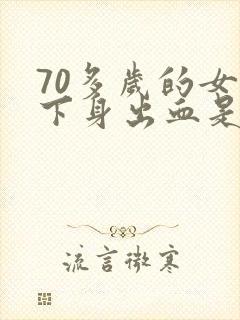 70多岁的女
下身出血是
流言微寒